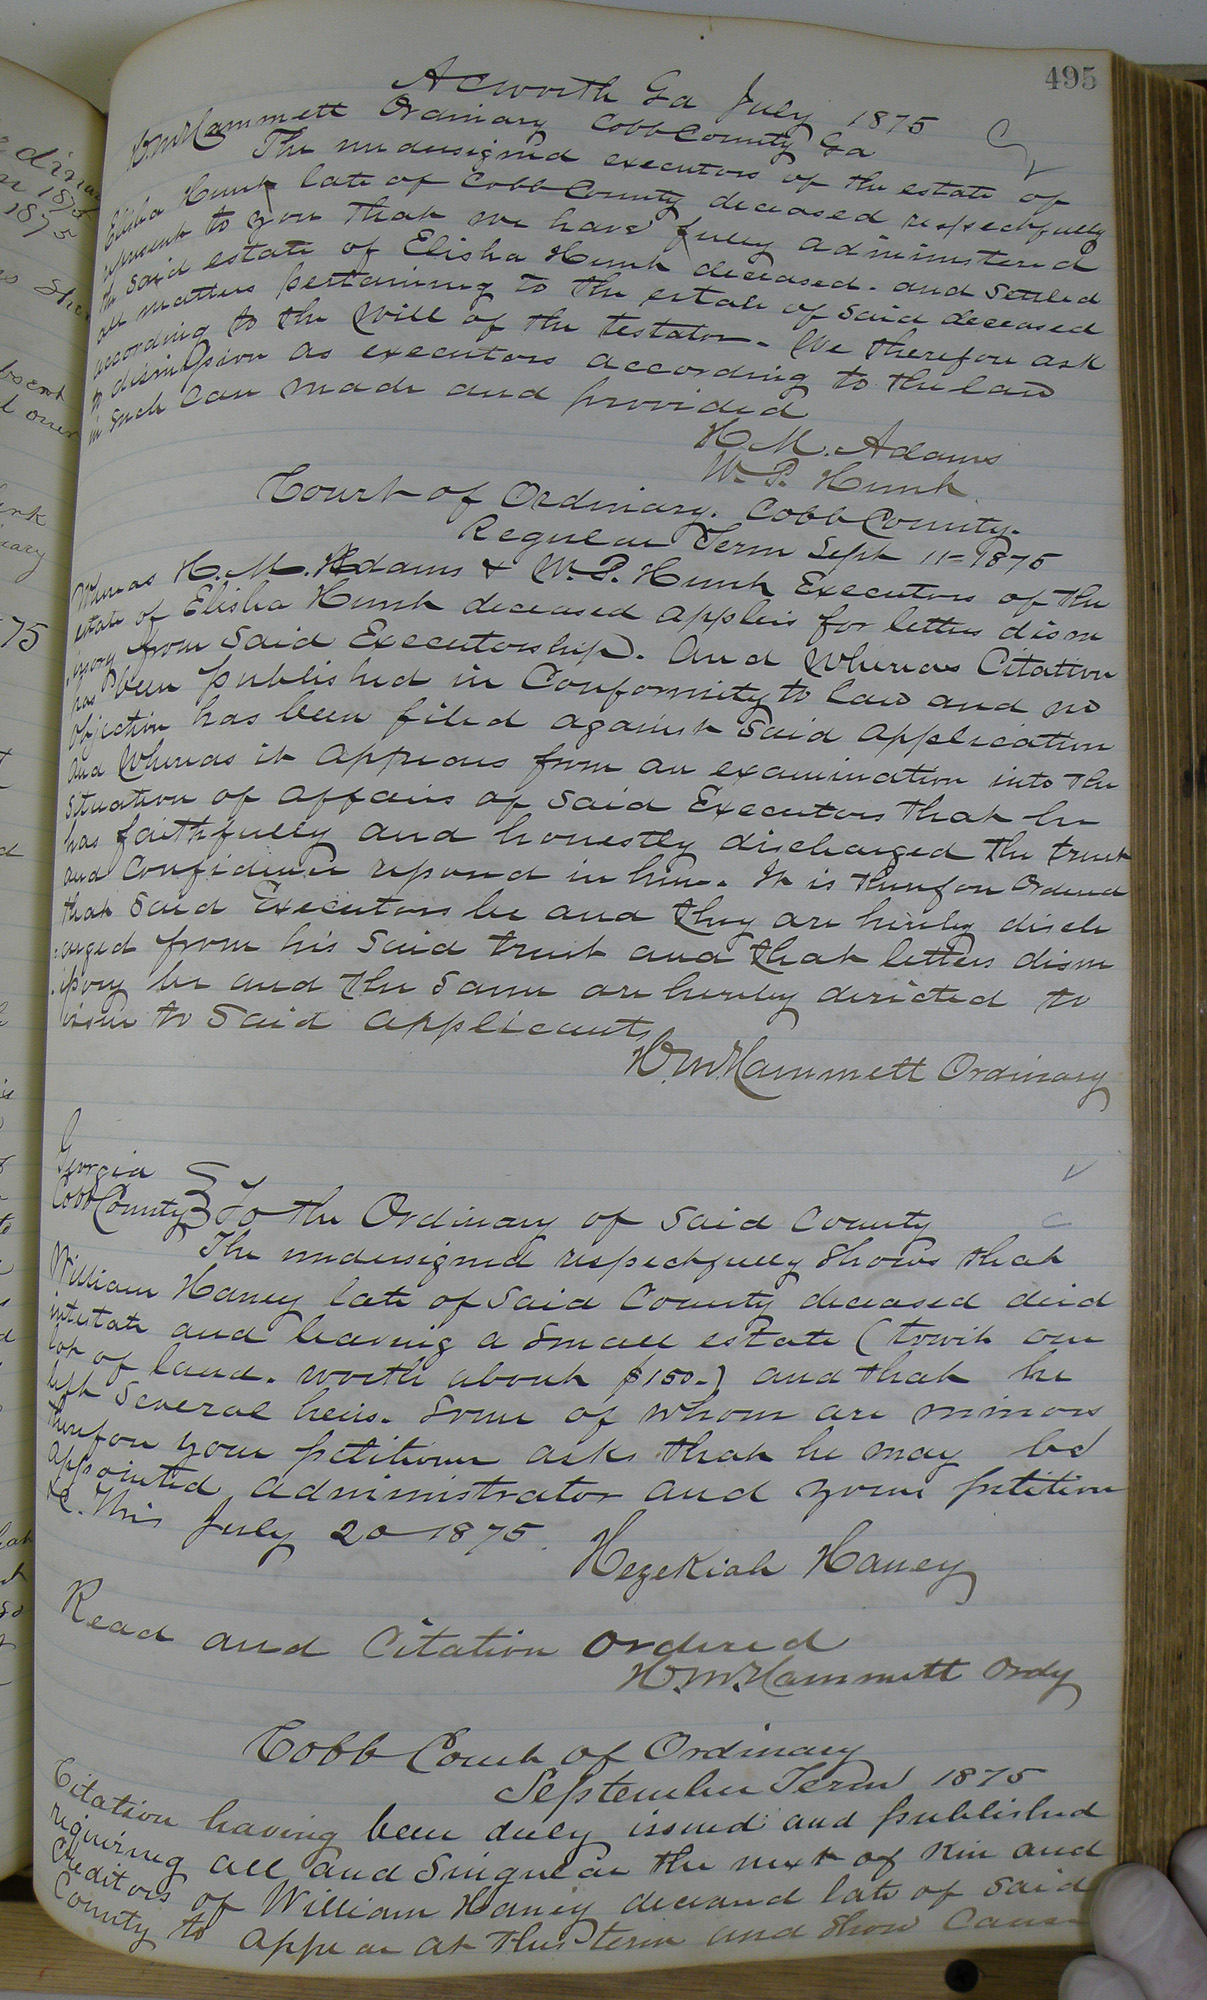 495
Acworth Ga July 1875
Ordinary Cobb County Ga
The undersigned executors of the estate of
Elisha Hunt late of Cobb County deceased respectfully
represent to you that we have fully administered
the said estate of Elisha Hunt deceased. and settled
all matters pertaining to the estate of said deceased
according to the Will of the testator. We therefore ask
to dismission as executors according to the law
in such case made and provided
H. M. Adams
W. P. Hunt.
Court of Ordinary. Cobb County.
Regular Term Sept 11= 1875
Whereas H. M. Adams & W. P. Hunt Executors of the
estate of Elisha Hunt deceased applies for letters dism
issory from said Executorship. And Whereas Citation
has been published in Conformity to law and no
objection has been filed against said application
and Whereas it appears from an examination into the
situation of affairs of said Executors that he
has faithfully and honestly discharged the trust
and Confidence reposed in him. It is therefore ordered
that said Executors be and they are hereby disch
arged from his said trust and that letters dism
issory be and the same are hereby directed to
issue to said applicants
W. M. Hammett Ordinary
Georgia
Cobb County } To the Ordinary of said County
The undersigned respectfully shows that
William Haney late of said County deceased died
intestate and leaving a small estate (towit one
lot of land. worth about $150.) and that he
left several heirs. some of whom are minors
therefore your petitioner asks that he may be
appointed administrator and your petition
&c. This July 20 1875.
Hezekiah Haney
Read and Citation ordered
H. M. Hammett Ordy
Cobb Court of Ordinary
September Term 1875
Citation having been duly issued and published
requiring all and singular the next of kin and
Creditors of William Haney deceased late of said
County to appear at this term and show Cause